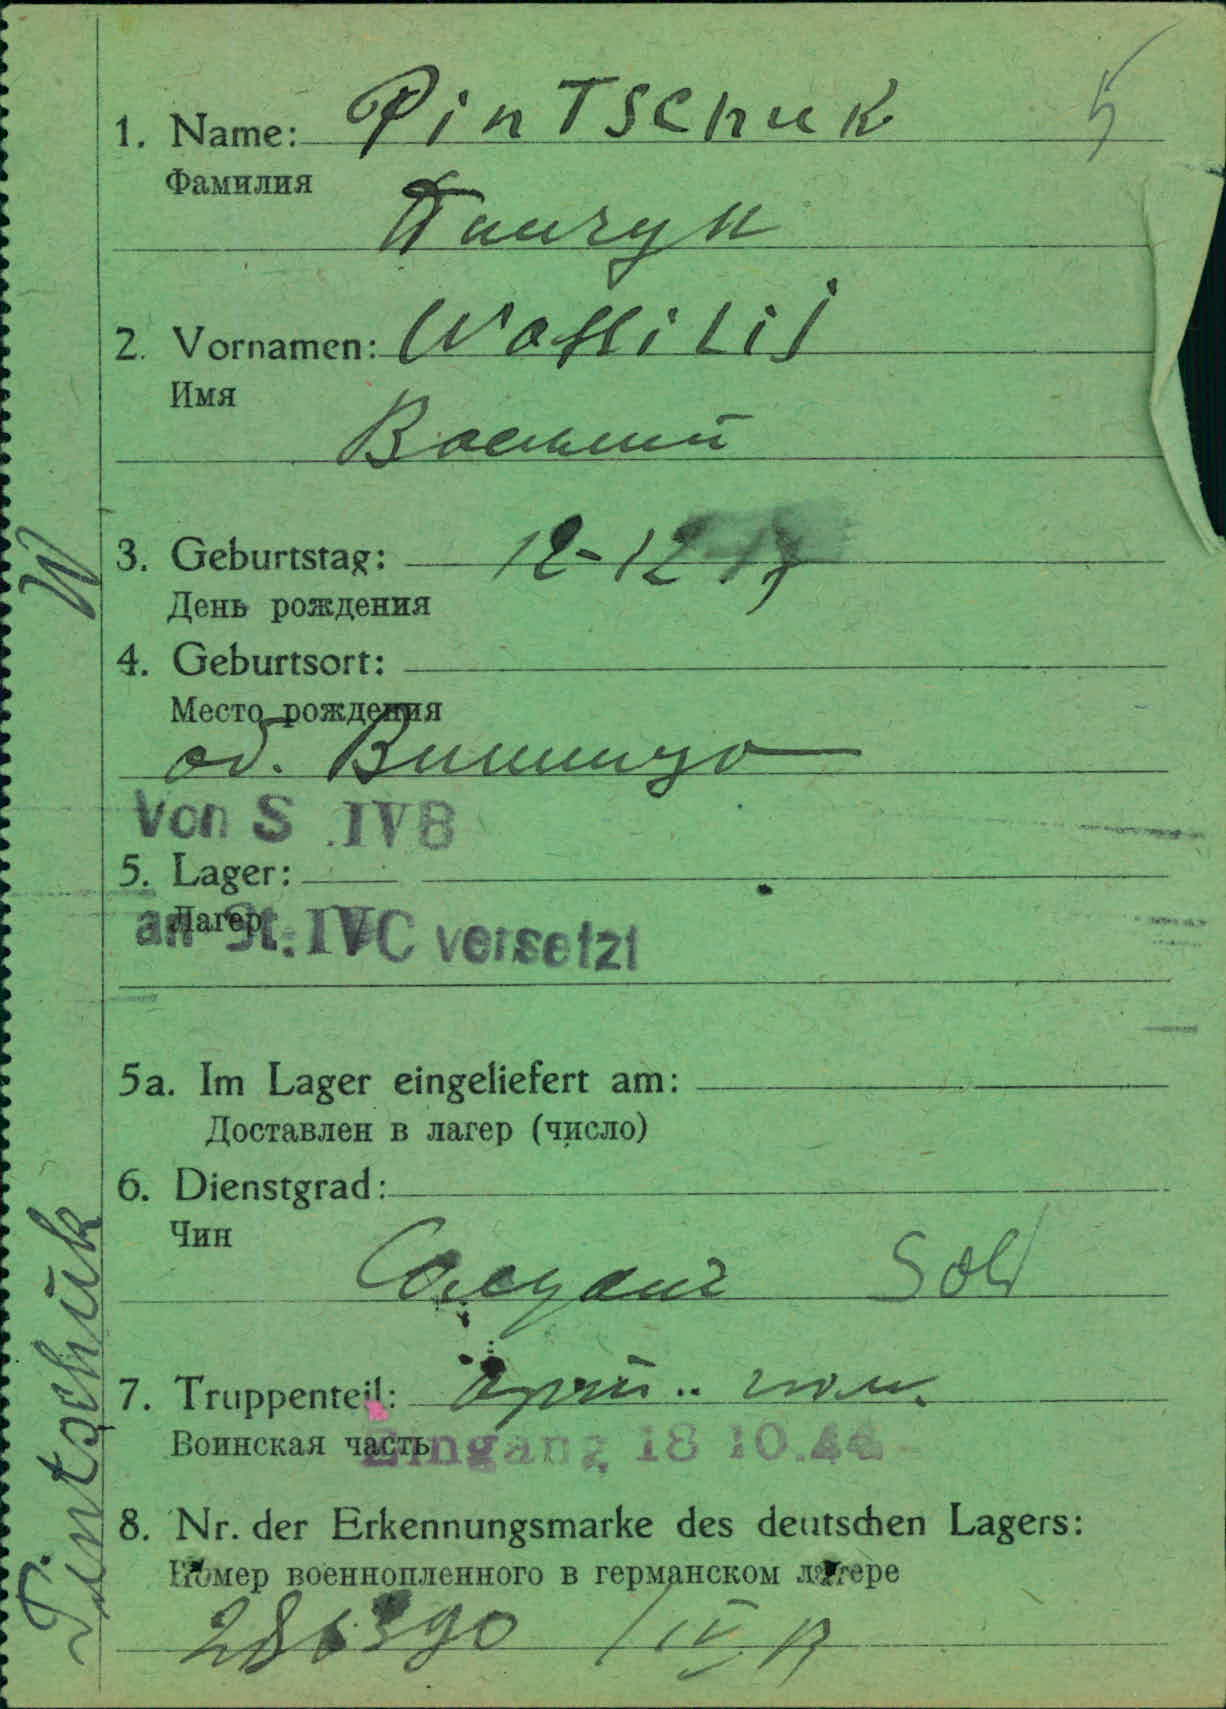 1. Name: Pintschuk
Фамилия
Пинчук
2. Vornamen: Wassilij
Имя
Василий
3. Geburtstag: 12-12-17
День рождения
4. Geburtsort:
Место рождения
об. Винницо
Von S .IVB
5. Lager:
Лагер
an St. IVC versetzt
5a. Im Lager eingeliefert am:
Доставлен в лагер (число)
6. Dienstgrad:
Чин
Солдат Sold
7. Truppenteil:
Воинская часть
Eingang 18 10.
8. Nr. der Erkennungsmarke des deutschen Lagers:
Номер военнопленного в германском лагере
/ IV B
W
Pintschuk